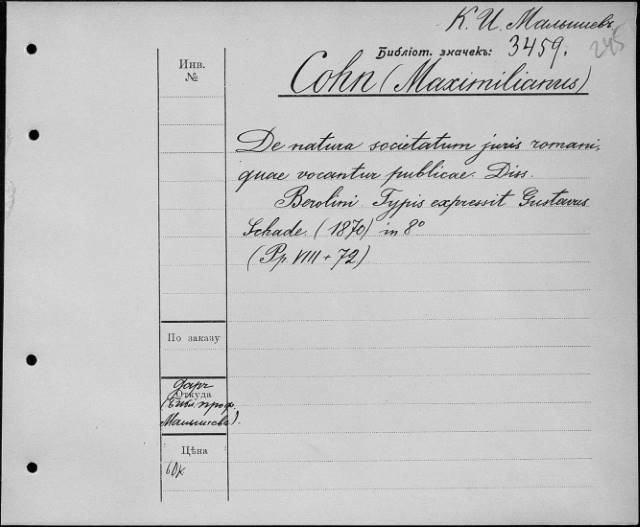 К. И. Малышевъ
245
Библіот. значекъ: 3459.
Инв.
№
Cohn (Maximilianus)
De natura societatum juris romani,
quae vocantur publicae. Diss.
Berolini. Typis expressit Gustavus
Schade. (1870) in 8º
(Pp. VIII + 72)
По заказу
Даръ
Откуда
(Библ. проф.
Малышева).
Цѣна
60к.